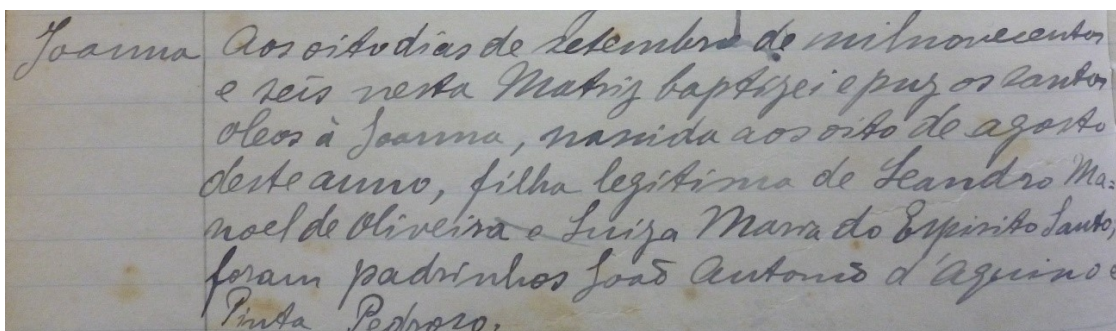 Joanna
Aos oito dias de setembro de mil novecentos
e seis nesta Matriz baptizei e puz os santos
oleos à Joanna, nascida aos oito de agosto
deste anno, filha legitima de Leandro Ma=
noel de Oliveira e Luiza Maria do Espirito Santo,
foram padrinhos João Antonio d'Aquino e
Pinta Pedroso.